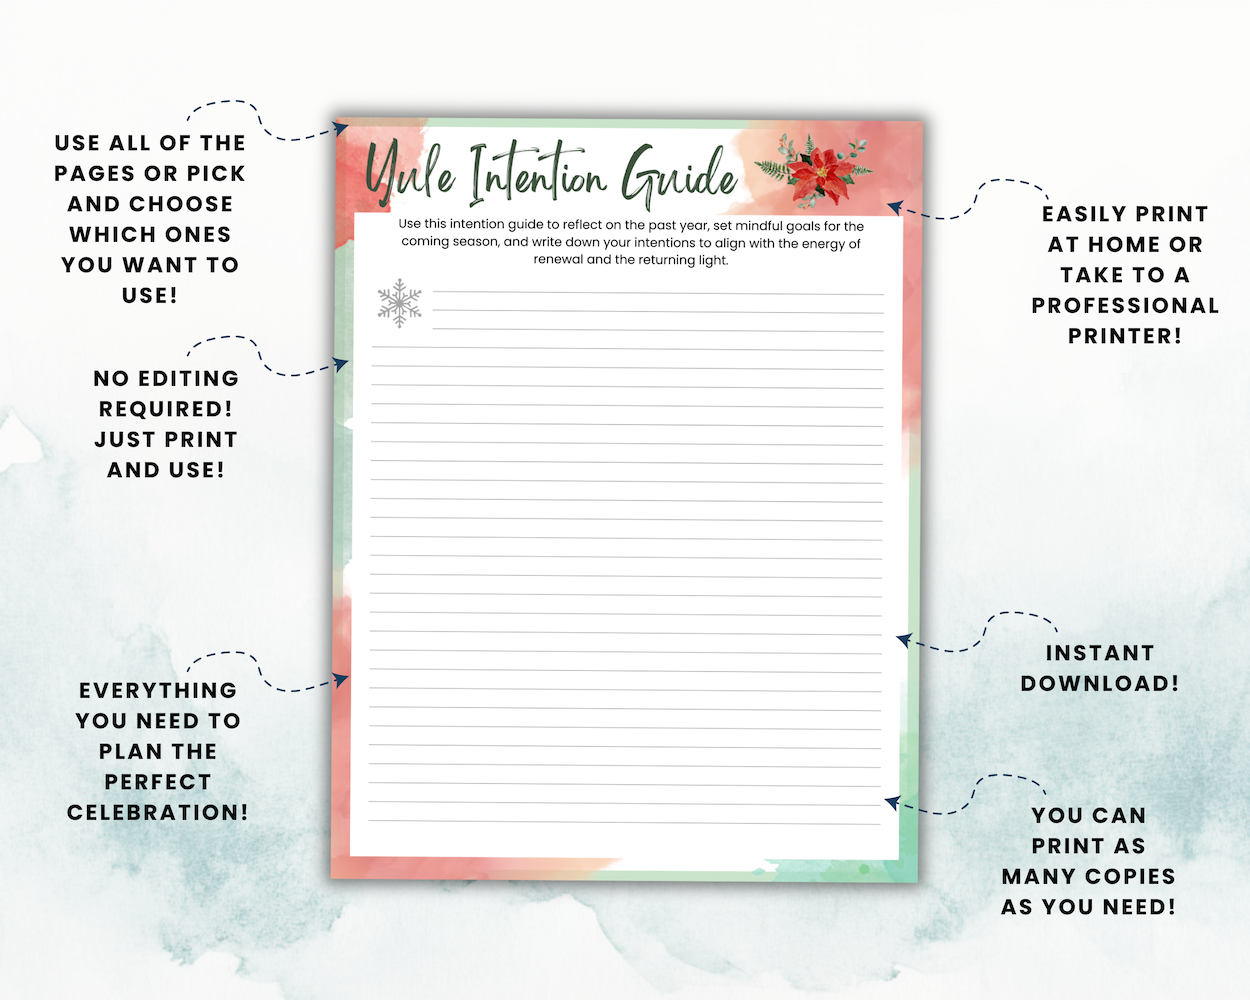 Yule Intention Guide
Use this intention guide to reflect on the past year, set mindful goals for the
coming season, and write down your intentions to align with the energy of
renewal and the returning light.
USE ALL OF THE
PAGES OR PICK
AND CHOOSE
WHICH ONES
YOU WANT TO
USE!
NO EDITING
REQUIRED!
JUST PRINT
AND USE!
EVERYTHING
YOU NEED TO
PLAN THE
PERFECT
CELEBRATION!
EASILY PRINT
AT HOME OR
TAKE TO A
PROFESSIONAL
PRINTER!
INSTANT
DOWNLOAD!
YOU CAN
PRINT AS
MANY COPIES
AS YOU NEED!